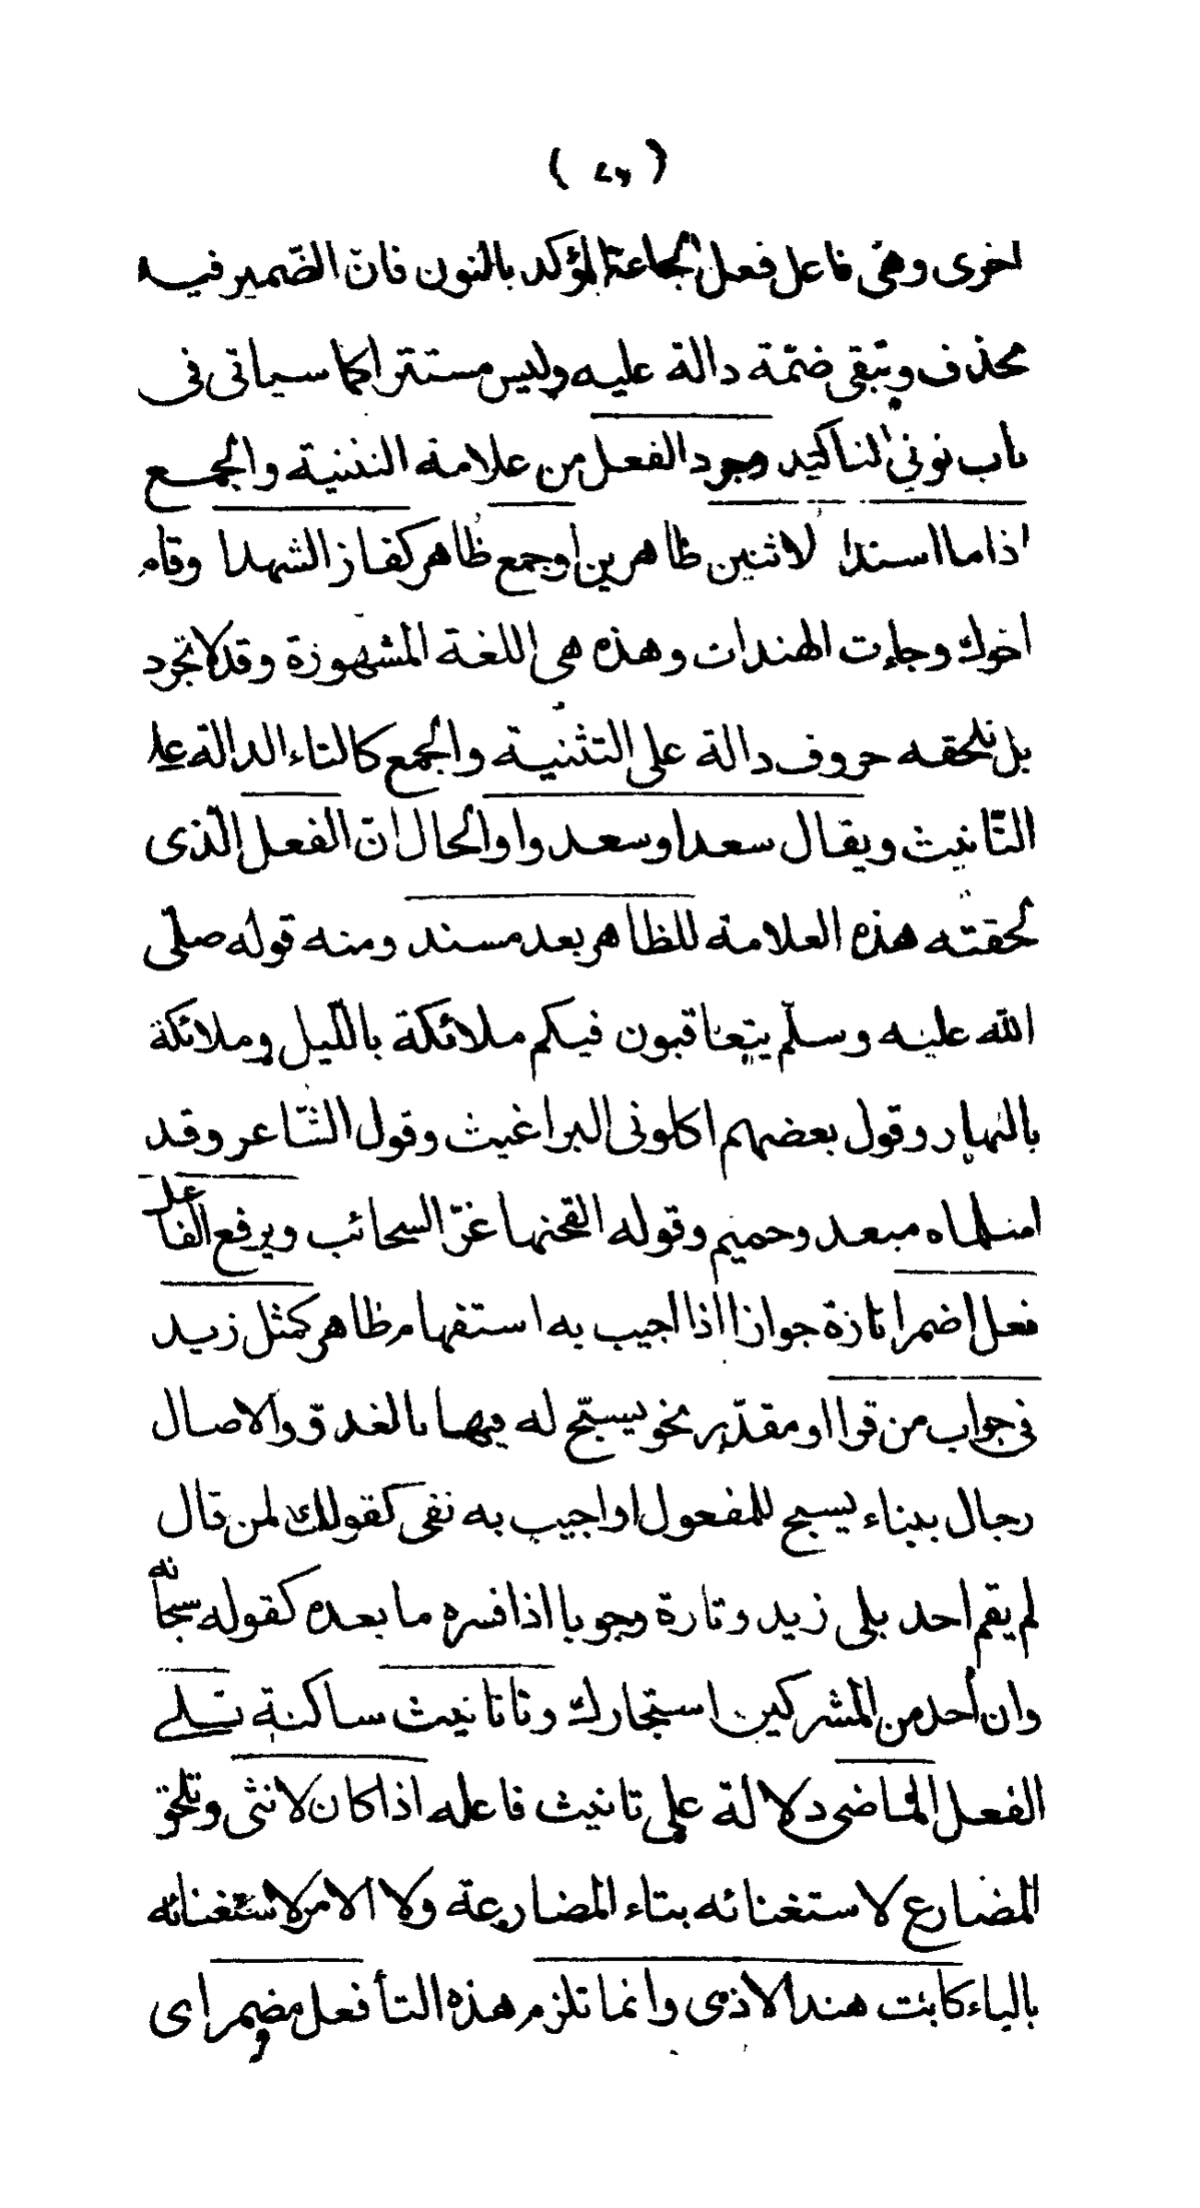 اخرى وهى فاعل فعل الجاعة المؤكد بالنون فان الضمير فيه
محذف وتبقى ضمّة دالة عليه وليس مستترا كما سياتى فى
باب نونى التاكيد وجرد الفعل من علامة التثنية والجمع
اذا ما اسندا لاثنين ظاهرين اوجمع ظاهر كفاز الشهدا وقام
اخوك وجاءت الهندات وهذه هى اللغة المشهورة وقد لا تجرد
بل تلحقه حروف دالة على التثنية والجمع كالتاء الدالة على
التّانيث ويقال سعدا وسعدوا والحال انّ الفعل الّذى
لحقته هذه العلامة للظاهر بعد مسند ومنه قوله صلّى
الله عليه وسلّم يتعاقبون فيكم ملائكة باللّيل وملائكة
بالنهار وقول بعضهم اكلونى البراغيث وقول الشّاعر وقد
اسلماه مبعد وحميم وقوله القحنها غرّ السحائب ويرفع الفاعل
فعل اضمرا تارة جوازا اذا اجيب به استفهام ظاهر كمثل زيد
فى جواب من قرا او مقدّر نحو يسبّح له فيها بالغدو والاصال
رجال ببناء يسبح للمفعول او اجيب به نفى كقولك لمن قال
لم يقم احد بلى زيد وتارة وجوبا اذا فسره ما بعده كقوله سبحانه
وان أحد من المشركين استجارك وتا تانيث ساكنة تلى
الفعل الماضى دلالة على تانيث فاعله اذا كان لانثى وتلحق
المضارع لاستغنائه بتاء المضارعة ولا الامر لاستغنائه
بالياء كابت هند الاذى وانما تلزم هذه التأ فعل مضمر اى